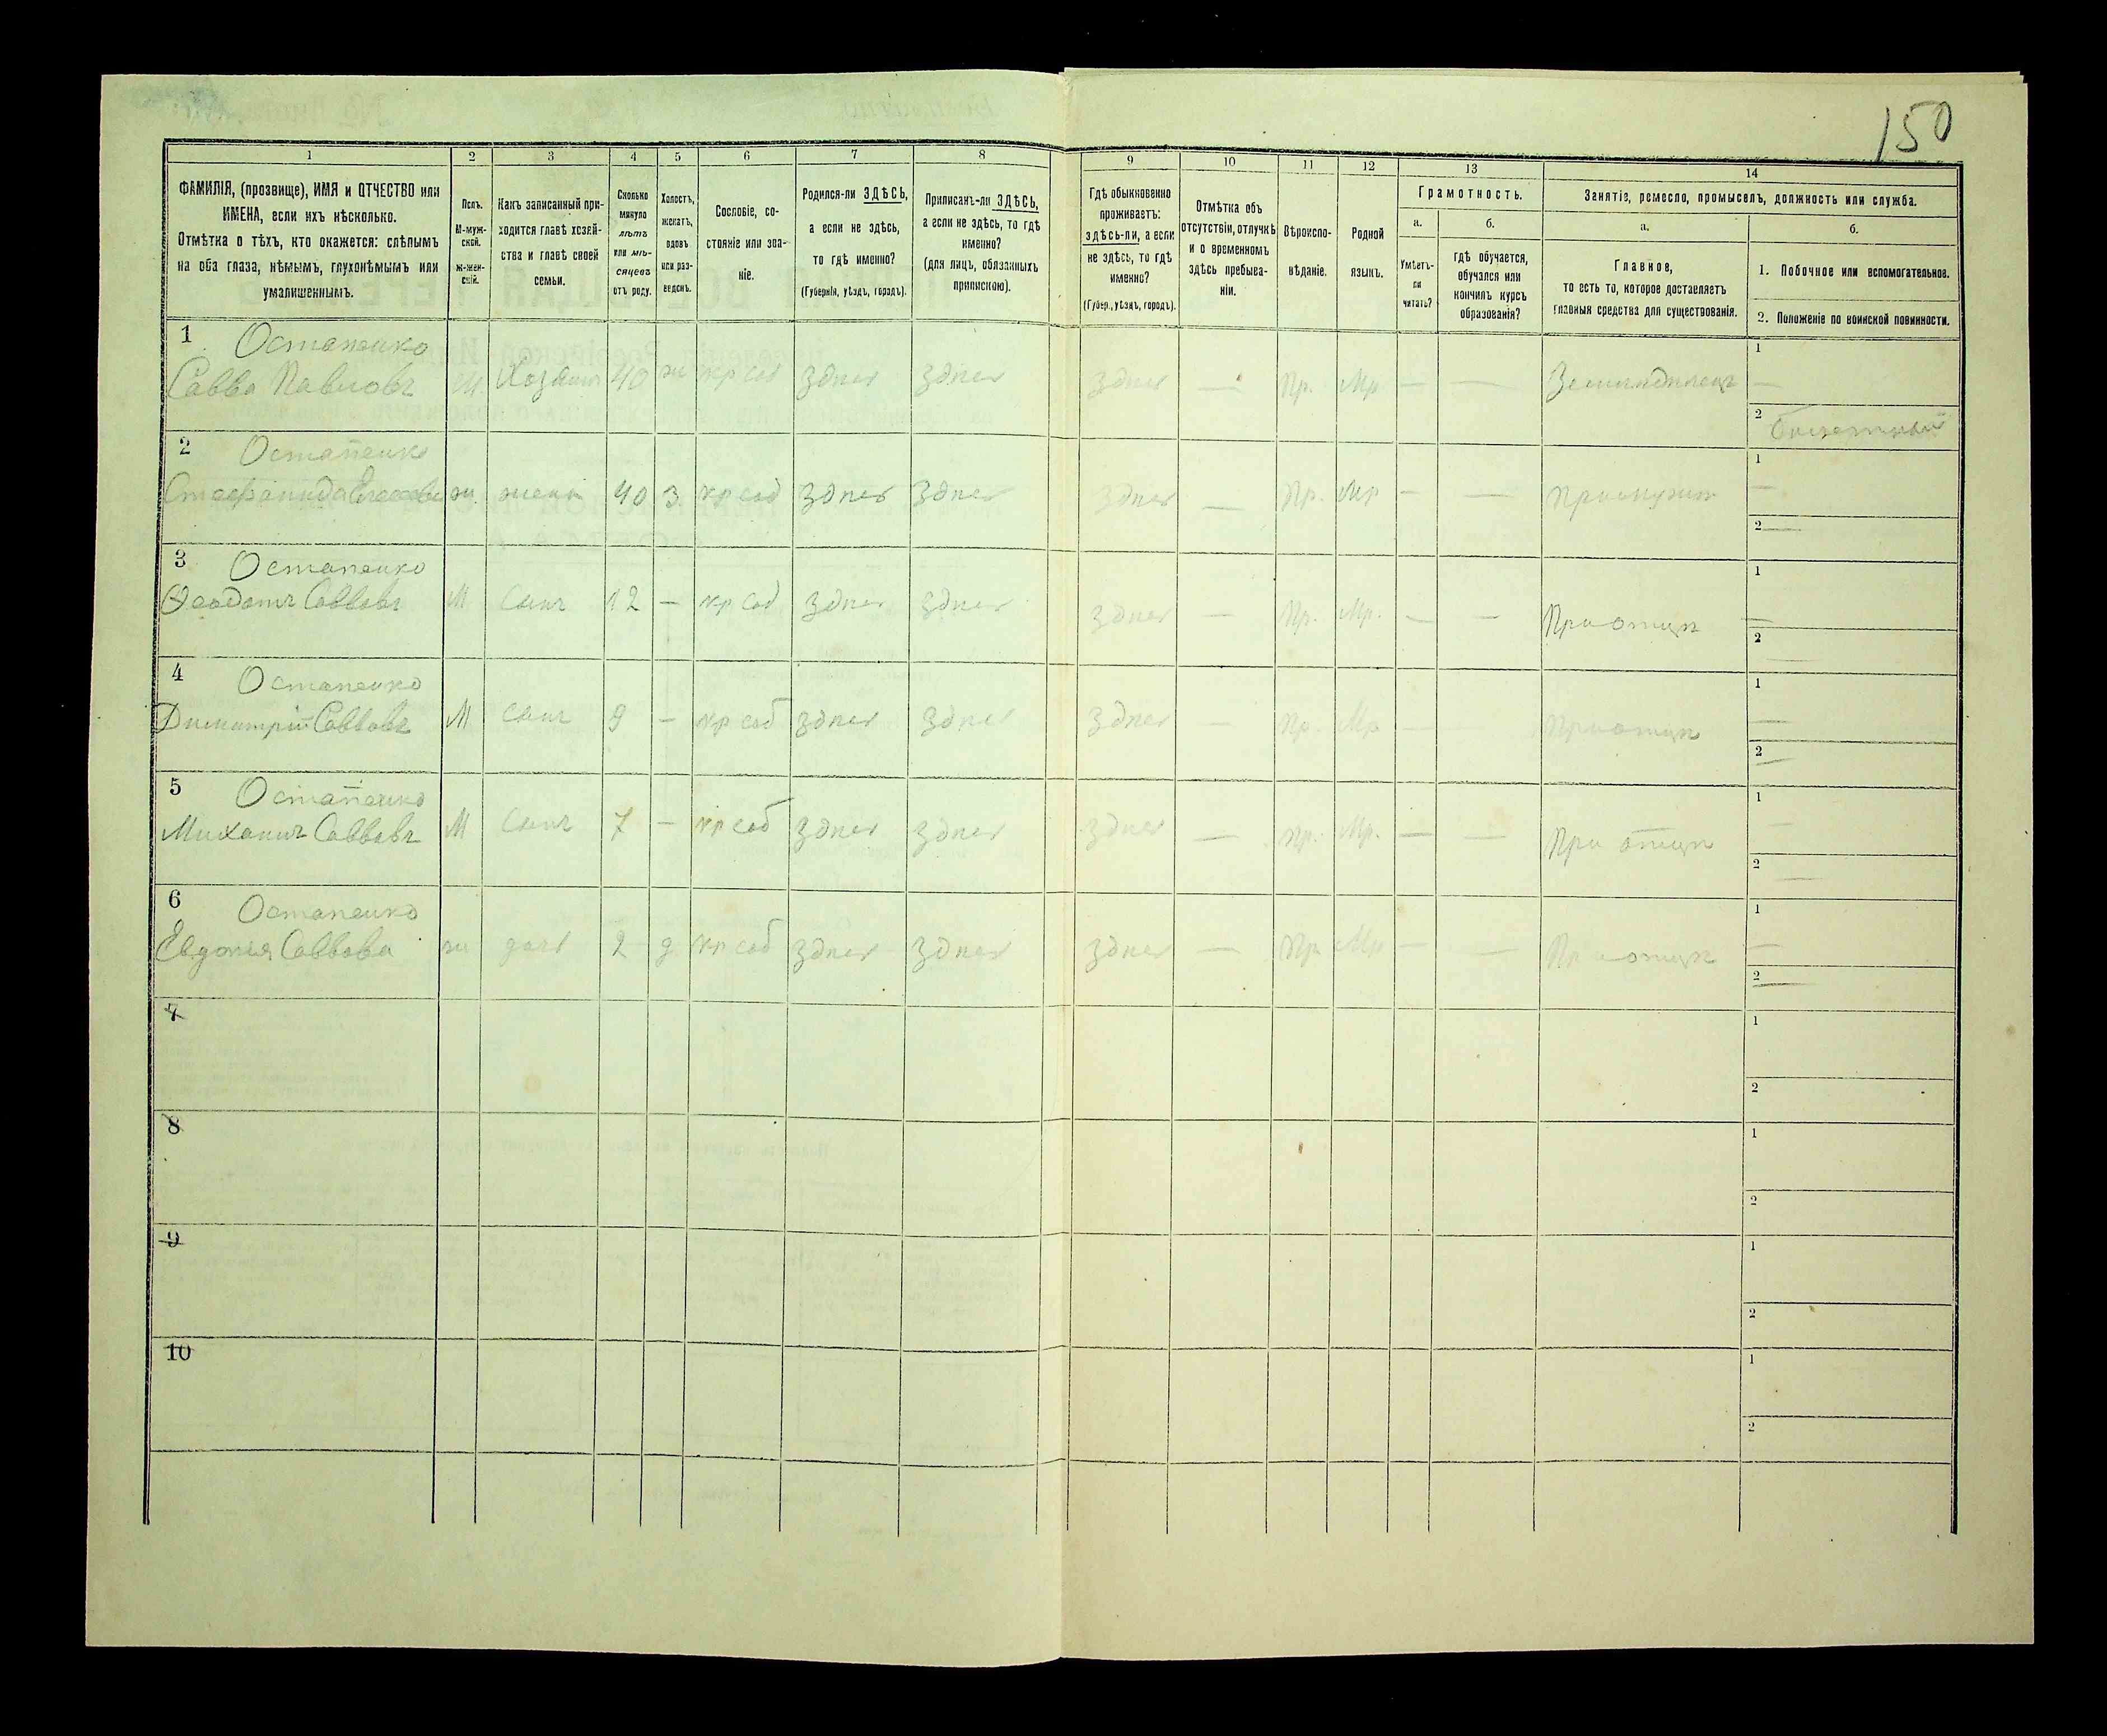 150
1 2 3 4 5 6 7 8 9 10 11 12 13 14
ФАМИЛІЯ, (прозвище), ИМЯ и ОТЧЕСТВО или
ИМЕНА, если ихъ нѣсколько.
Отмѣтка о тѣхъ, кто окажется: слѣпымъ
на оба глаза, нѣмымъ, глухонѣмымъ или
умалишеннымъ.
Полъ.
М-муж-
ской.
ж-жен-
скій.
Какъ записанный при-
ходится главѣ хозяй-
ства и главѣ своей
семьи.
Сколько
минуло
лѣтъ
или мѣ-
сяцевъ
отъ роду.
Холостъ,
женатъ,
вдовъ
или раз-
веденъ.
Сословіе, со-
стояніе или зва-
ніе.
Родился-ли ЗДѢСЬ,
а если не здѣсь,
то гдѣ именно?
(Губернія, уѣздъ, городъ).
Приписанъ-ли ЗДѢСЬ,
а если не здѣсь, то гдѣ
именно?
(для лицъ, обязанныхъ
припискою).
Гдѣ обыкновенно
проживаетъ:
здѣсь-ли, а если
не здѣсь, то гдѣ
именно?
(Губер., уѣздъ, городъ).
Отмѣтка объ
отсутствіи, отлучкѣ
и о временномъ
здѣсь пребыва-
ніи.
Вѣроиспо-
вѣданіе.
Родной
языкъ.
Грамотность.
а.
Умѣетъ-
ли
читать?
б.
гдѣ обучается,
обучался или
кончилъ курсъ
образованія?
Занятіе, ремесло, промыселъ, должность или служба.
а.
Главное,
то есть то, которое доставляетъ
главныя средства для существованія.
б.
1. Побочное или вспомогательное.
2. Положеніе по воинской повинности.
1 Остапенко 1
Савва Павловъ М. Хозяинъ 40 ж кр соб здѣсь здѣсь здѣсь — Пр. Мр — — Земледѣлецъ —
2
2 Остапенко 1
Стефанида ж жена 40 з кр соб здѣсь здѣсь здѣсь — Пр. Мр — — При мужѣ —
2 —
3 Остапенко 1
Ѳеодотъ Саввовъ М сынъ 12 — кр соб здѣсь здѣсь здѣсь — Пр. Мр. — — При отцѣ —
2 —
4 Остапенко 1
Димитрій Саввовъ М сынъ 9 — кр соб здѣсь здѣсь здѣсь — Пр. Мр — — При отцѣ —
2 —
5 Остапенко 1
Михаилъ Саввовъ М сынъ 7 — кр соб здѣсь здѣсь здѣсь — Пр. Мр. — — При отцѣ —
2 —
6 Остапенко 1
Евдокія Саввова ж дочь 2 д кр соб здѣсь здѣсь здѣсь — Пр Мр — — При отцѣ —
2 —
7 1
2
8 1
2
9 1
2
10 1
2